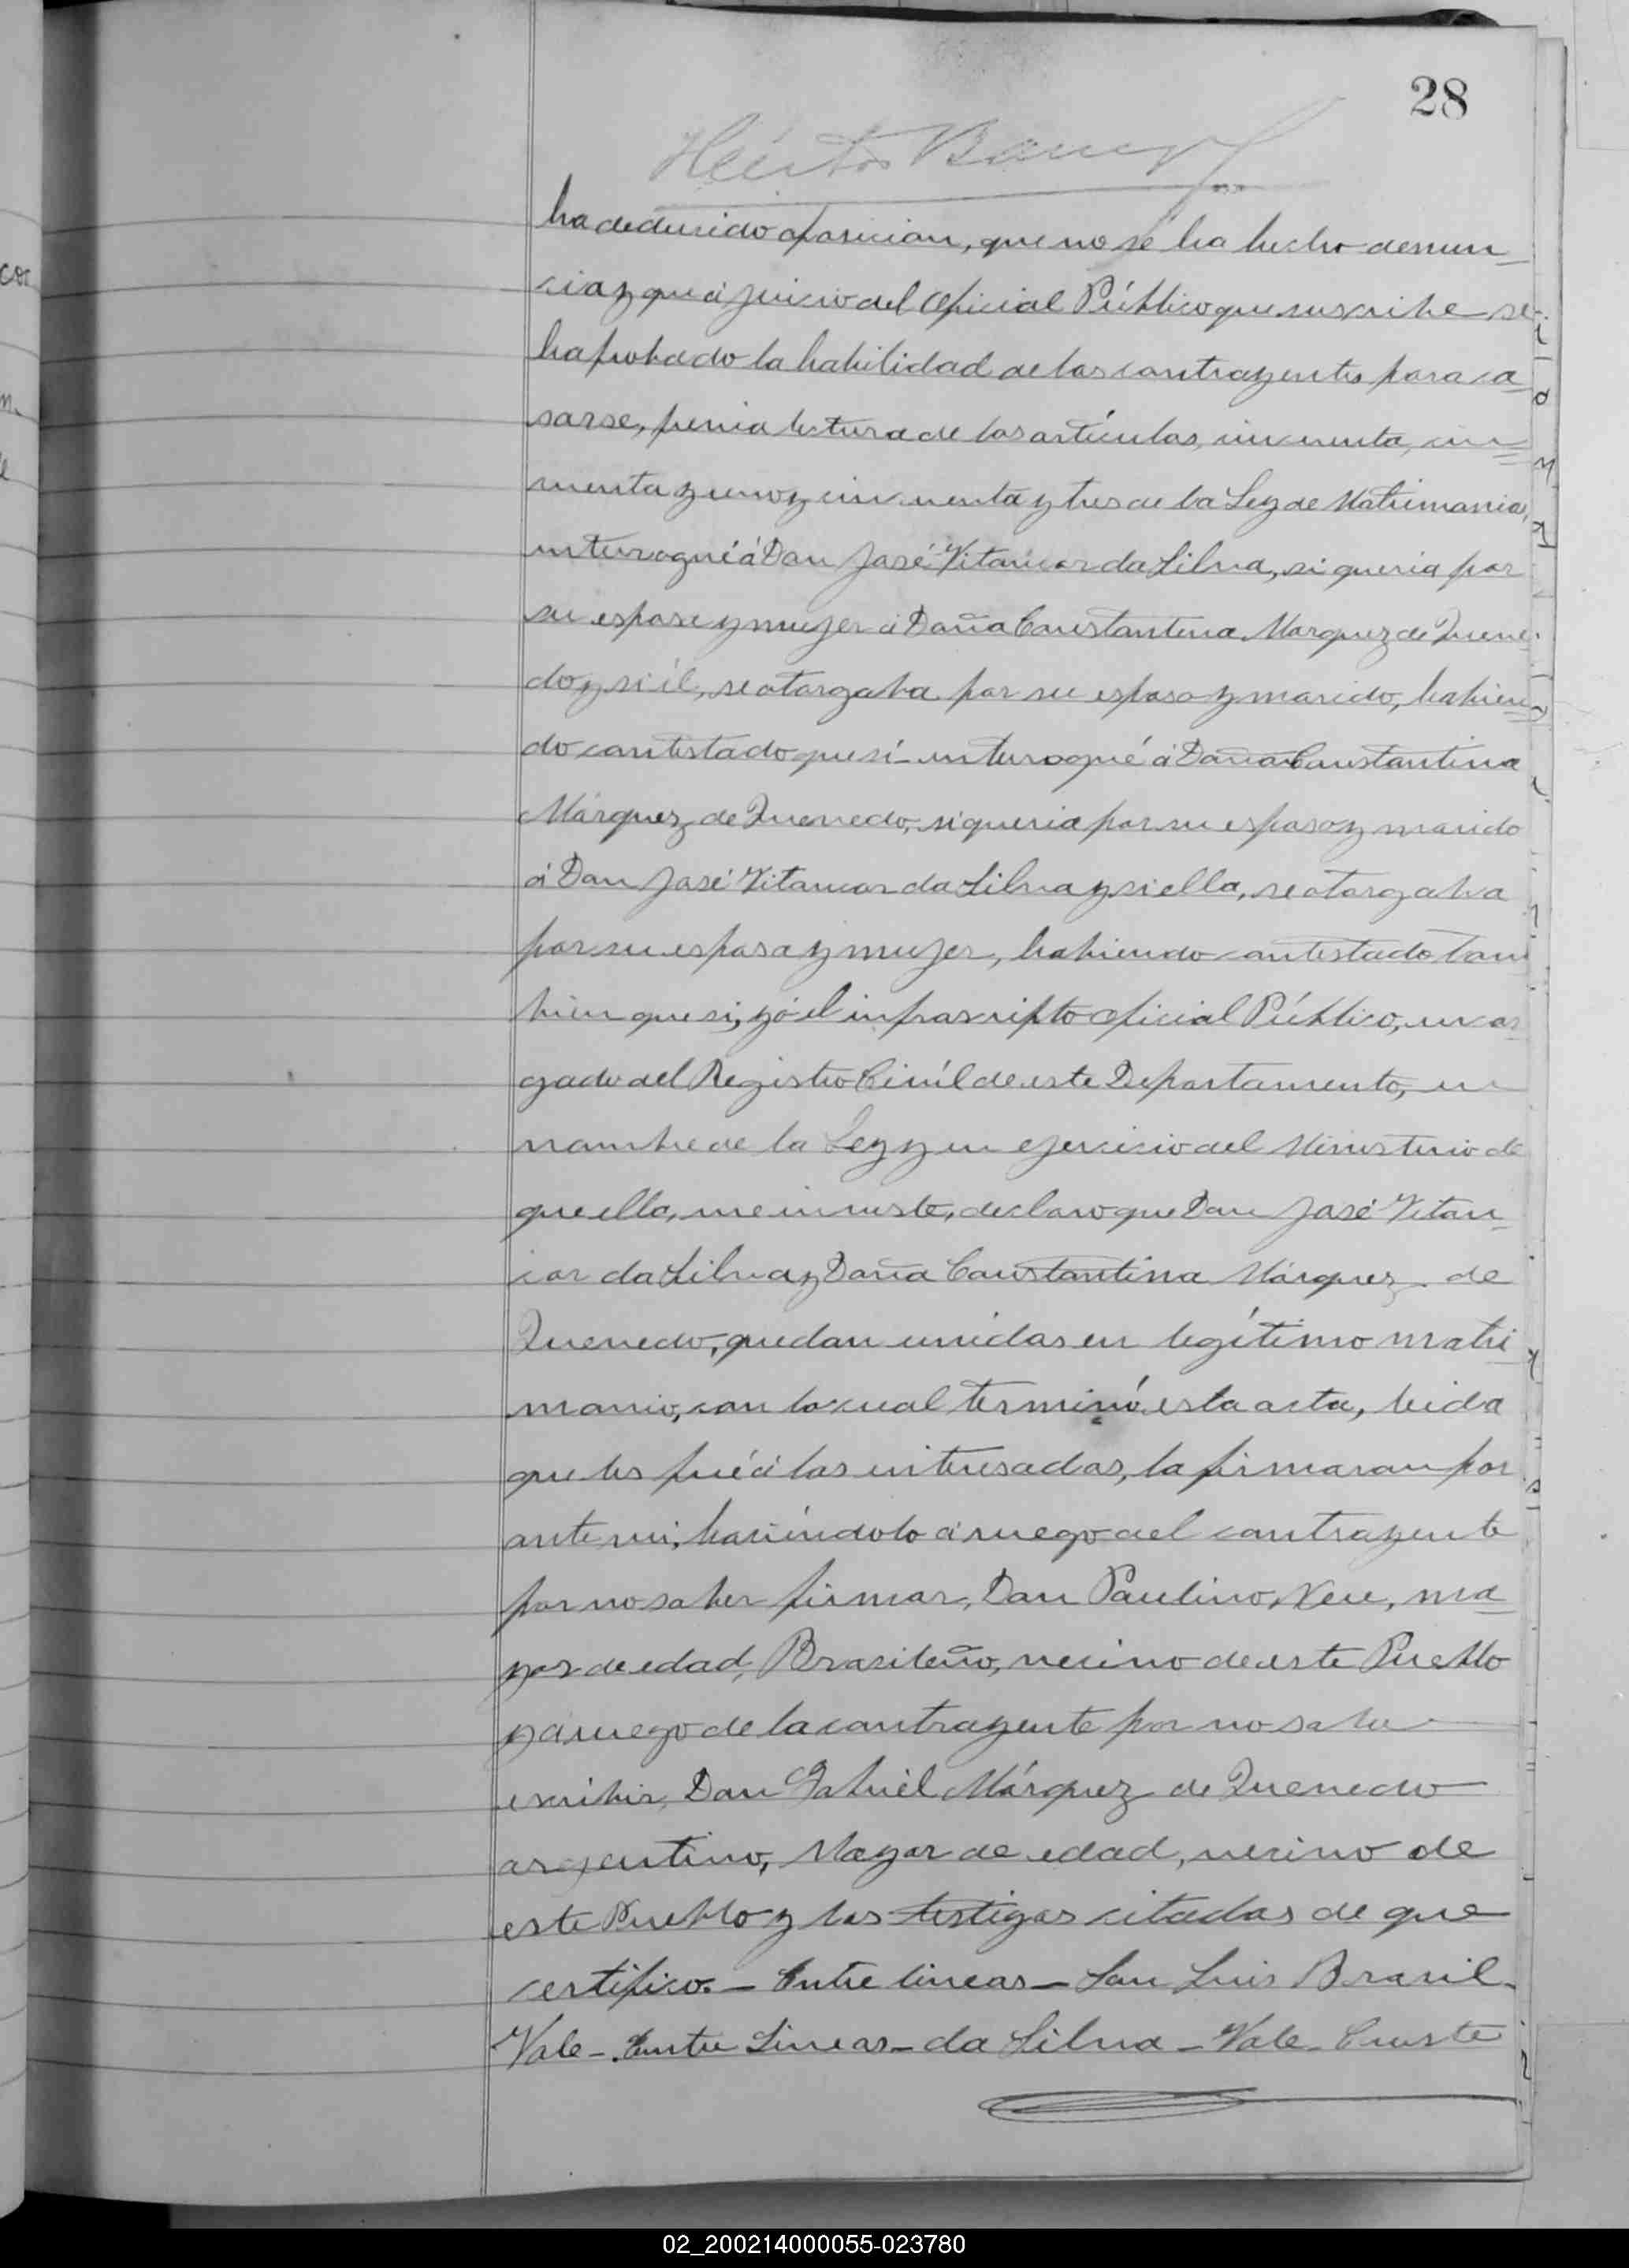 28
Héctor
ha deducido oposicion, que no se ha hecho denun_
cia y que á juicio del Oficial Público que suscribe se
ha probado la habilidad de los contrayentes para ca_
sarse, prévia lectura de los artículos, cincuenta, cin_
cuenta y uno y cincuenta y tres de la Ley de Matrimonio,
interogué á Don José Vitancor da Silva, si queria por
su esposa y mujer á Doña Constantina Marquez de Quene_
do y si él, se otorgaba por su esposo y marido, habien_
do contestado que sí_ interogué á Doña Constantina
Márquez de Quenedo, si queria por su esposo y marido
á Don José Vitancor da Silva y si ella, se otorgaba
por su esposa y mujer, habiendo contestado tam
bien que si, yó el infrascripto oficial Público, encar_
gado del Registro Civíl de este Departamento, en
nombre de la Ley y en ejercicio del Ministerio de
que ella, me inviste, declaro que Don José Vitan_
cor da Silva y Doña Constantina Márquez de
Quenedo, quedan unidos en legítimo matri_
monio, con lo cual terminó esta acta, leida
que les fué á los interesados, la firmaron por
ante mi, haciéndolo á ruego del contrayente
por no saber firmar, Don Paulino, ma_
yor de edad, Brasileño, vecino de este Pueblo
y á ruego de la contrayente por no saber
escribir, Don Gabriél Márquez de Quenedo
argentino, Mayor de edad, vecino de
este Pueblo y los testigos citados de que
certifico. _ Entre lineas _ San Luis Brasil_
Vale _ Entre Lineas _ da Silva _ Vale_
02_200214000055-023780